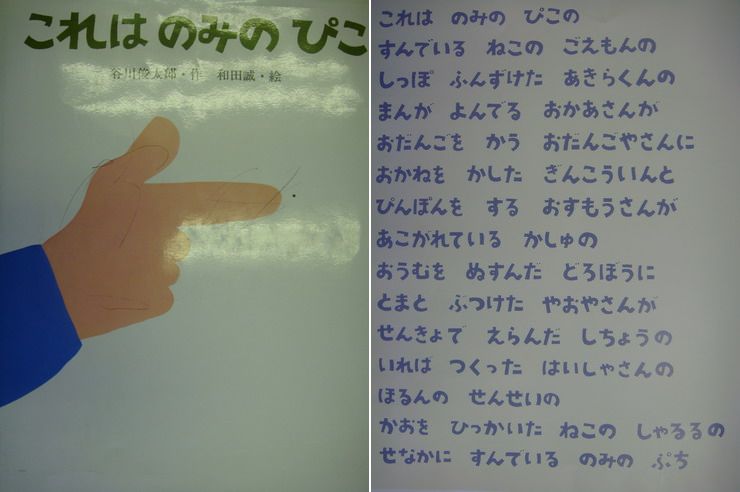 これは のみの ぴこ
谷川俊太郎・作 和田誠・絵
これは のみの ぴこの
すんでいる ねこの ごえもんの
しっぽ ふんずけた あきらくんの
まんが よんでる おかあさんが
おだんごを かう おだんごやさんに
おかねを かした ぎんこういんと
ぴんぽんを する おすもうさんが
あこがれている かしゅの
おうむを ぬすんだ どろぼうに
とまと ぶつけた やおやさんが
せんきょで えらんだ しちょうの
いれば つくった はいしゃさんの
ほるんの せんせいの
かおを ひっかいた ねこの しゃるるの
せなかに すんでいる のみの ぷち